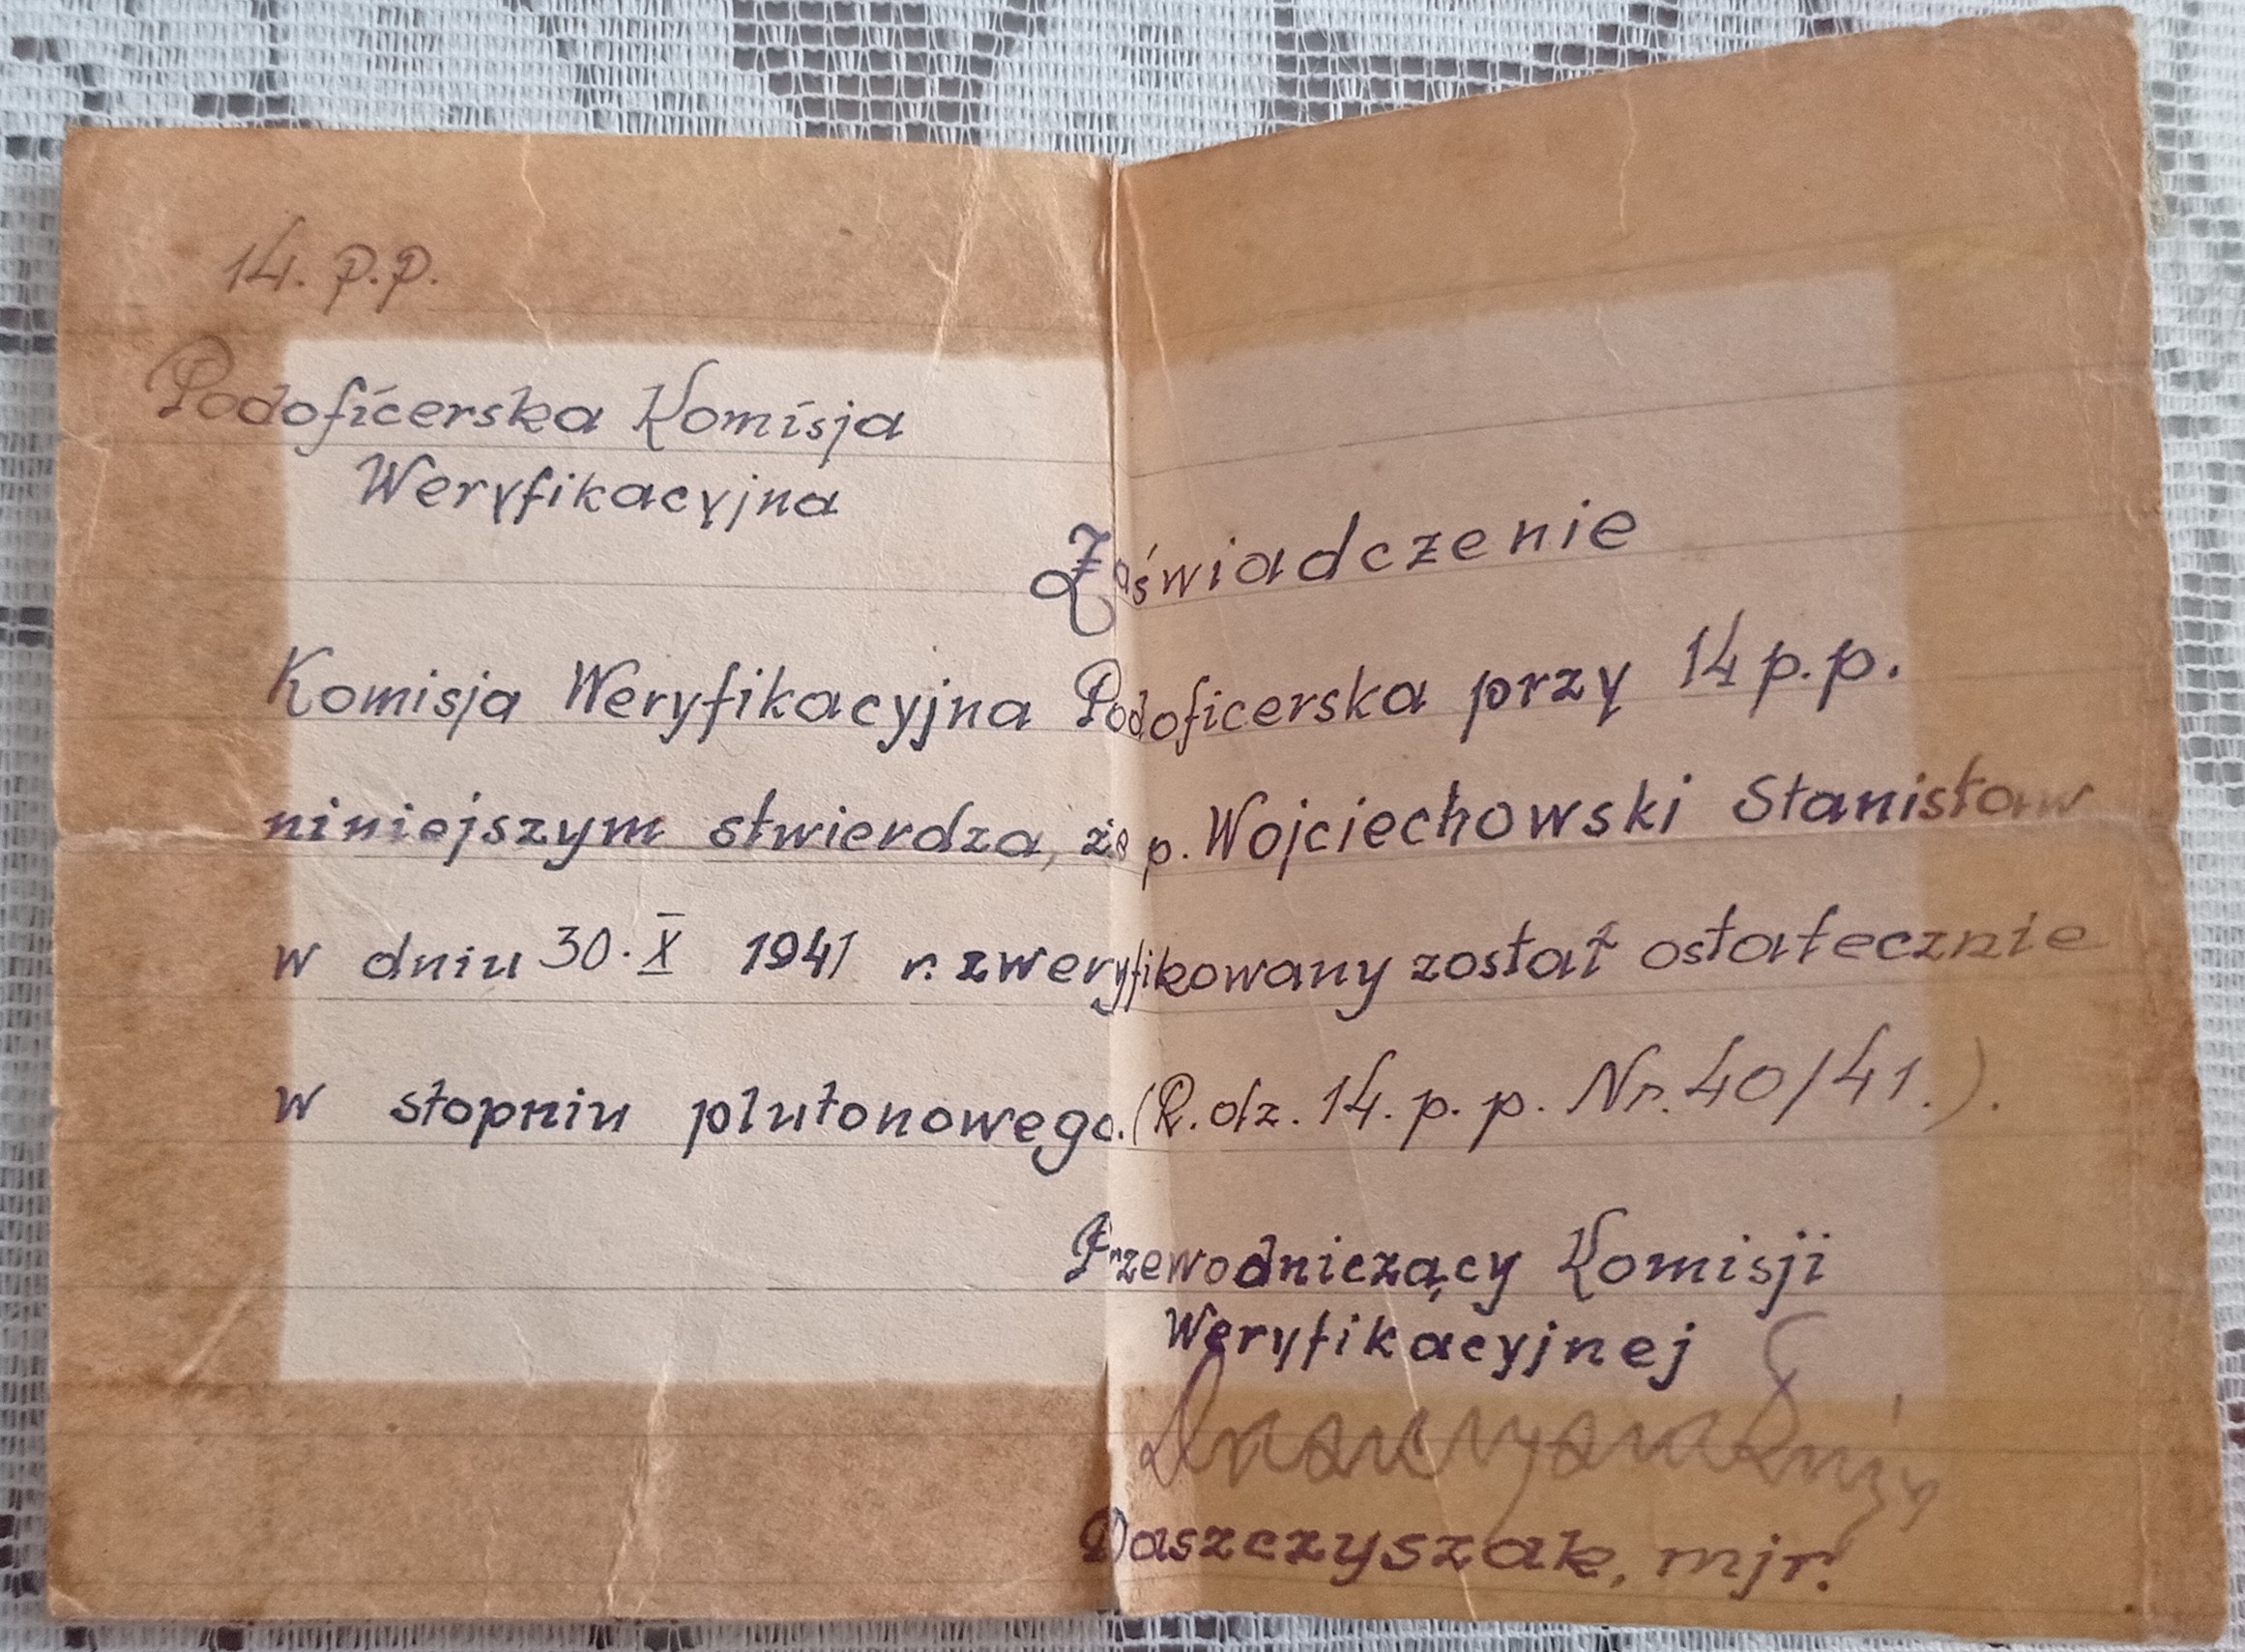 14. p.p.
Podoficerska Komisja
Weryfikacyjna
Zaświadczenie
Komisja Weryfikacyjna Podoficerska przy 14 p.p.
niniejszym stwierdza, że p. Wojciechowski Stanisław
w dniu 30. X 1941 r. zweryfikowany został ostatecznie
w stopniu plutonowego. (R. dz. 14. p. p. Nr. 40/41.).
Przewodniczący Komisji
Weryfikacyjnej
Daszczyszak, mjr.